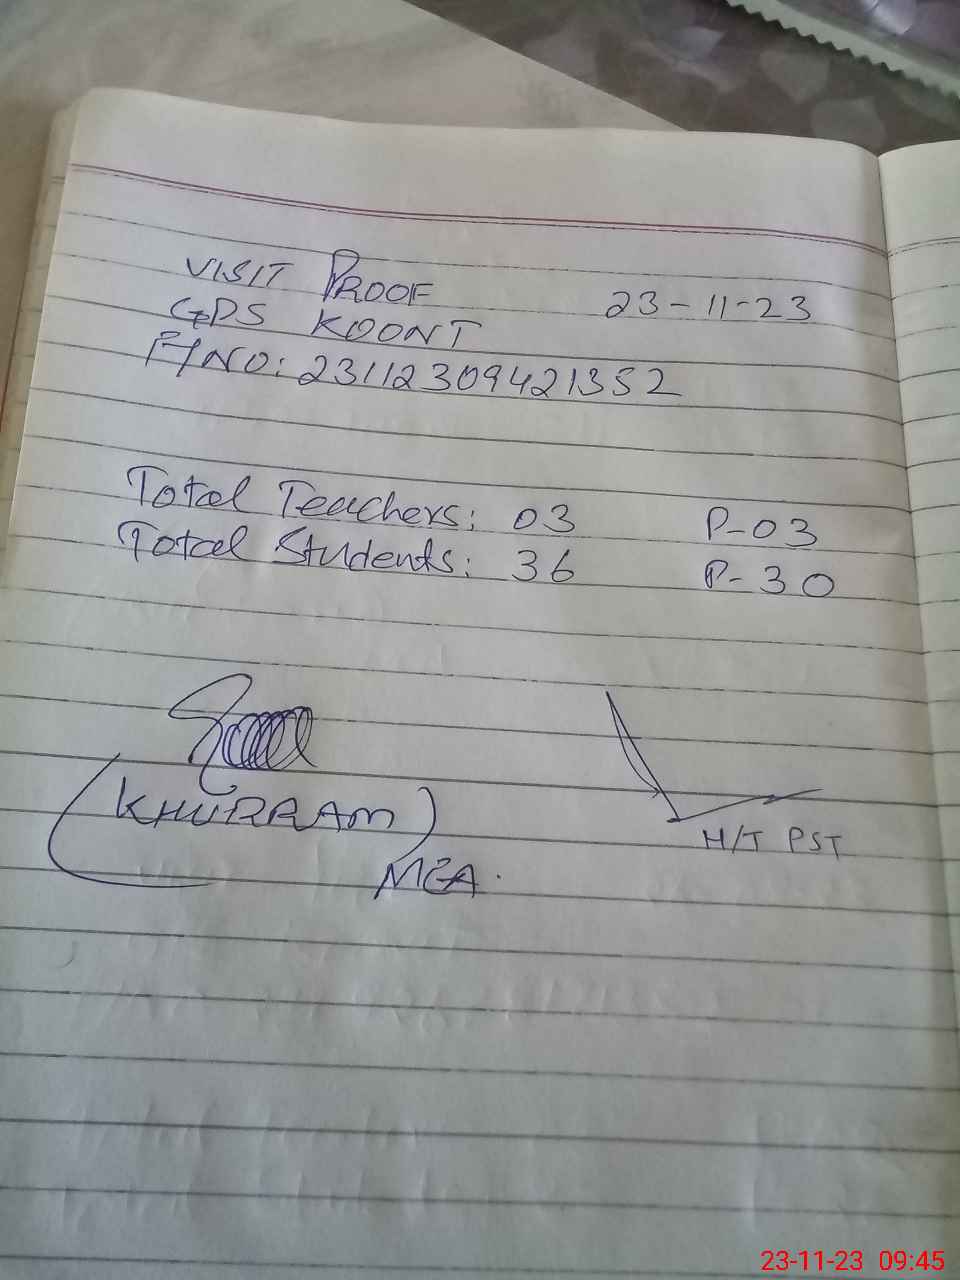 VISIT PROOF 23-11-23
GPS KOONT
F/NO: 23112309421352
Total Teachers: 03 P-03
Total Students: 36 P-30
(KHURRAM)
MEA.
H/T PST
23-11-23 09:45